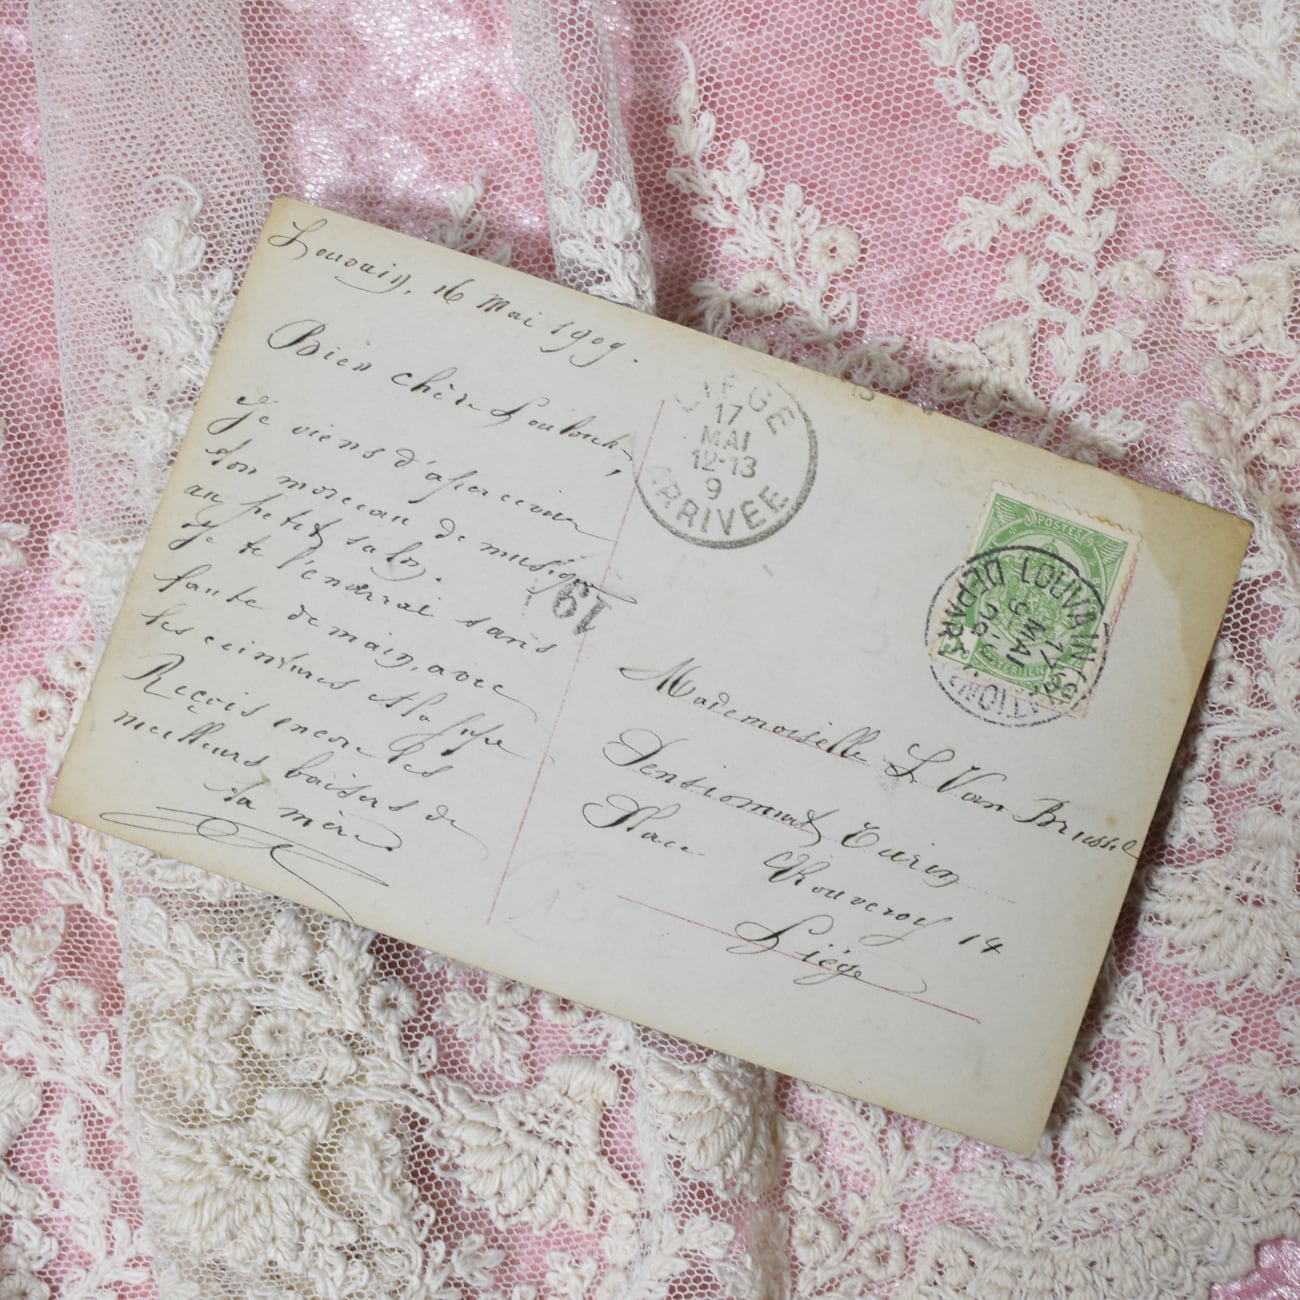 Louvain, 16 Mai 1909.
Bien chère Louloute,
Je viens d'apercevoir
ton morceau de musique
au petit salon.
Je te l'enverrai sans
faute demain, avec
les ceintures et la jupe
Reçois encore les
meilleurs baisers de
ta mère.
LIÈGE
17
MAI
12-13
9
ARRIVÉE
19
POSTES
LOUVAIN (STATION)
17 MAI
9
DEPART
Mademoiselle L. Van Brussel
Pensionnat
Place Rouveroy 14
Liége